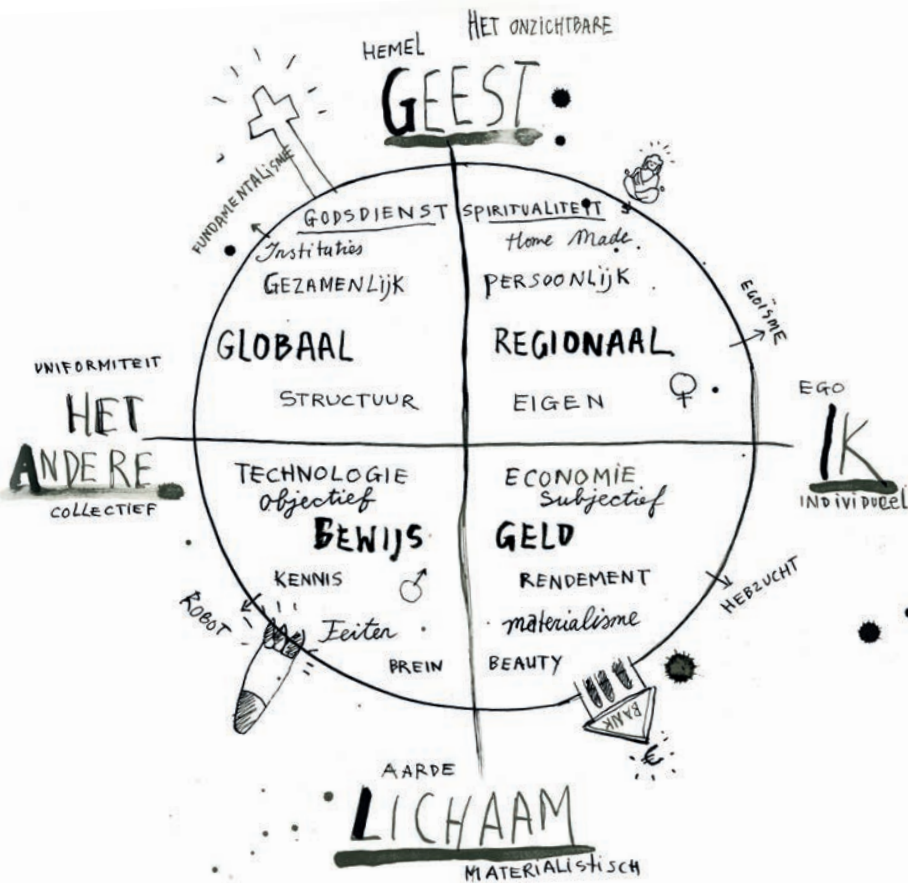 HET ONZICHTBARE
HEMEL
GEEST
FUNDAMENTALISME
GODSDIENST
Instituties
GEZAMENLIJK
GLOBAAL
STRUCTUUR
SPIRITUALITEIT
Home Made
PERSOONLIJK
REGIONAAL
EIGEN
EGOÏSME
UNIFORMITEIT
HET
ANDERE
COLLECTIEF
EGO
IK
INDIVIDUEEL
TECHNOLOGIE
objectief
BEWIJS
KENNIS
Feiten
BREIN
ROBOT
ECONOMIE
Subjectief
GELD
RENDEMENT
materialisme
BEAUTY
HEBZUCHT
BANK
€
AARDE
LICHAAM
MATERIALISTISCH